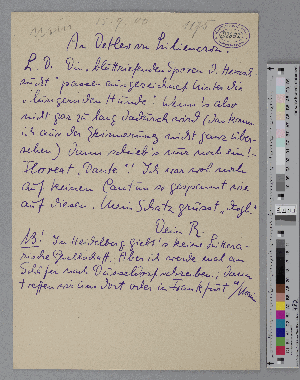 15.9.00
An Detlev von Liliencron.
L. D. Die „bluttriefenden Sporen d. Herrn
" passen ausgezeichnet hinter die
„hungernden Hunde". Wenn's aber
nicht gar zu lang dadurch wird (das kann
ich aus der Erinnerung nicht ganz über-
sehen). Dann schieb's nur noch ein!
Floreat „Dante"! Ich war wol noch
auf keinen Cantus so gespannt wie
auf diesen. Mein Schatz grüßt
Dein R.
NB! In Heidelberg giebt's keine Littera-
rische Gesellschaft. Aber ich werde mal an
Schäfer nach Düsseldorf schreiben; dann
treffen wir uns dort oder in Frankfurt a/Main